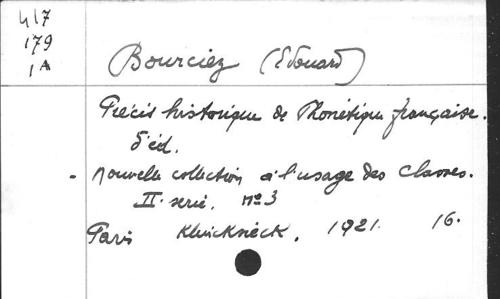 417
179
1A
Bourciez (Edouard)
Précis historique de Phonétique française.
5'éd.
- Nouvelle collection à l'usage des classes.
II. serie. no 3
Paris Klincksieck. 1921. 16.